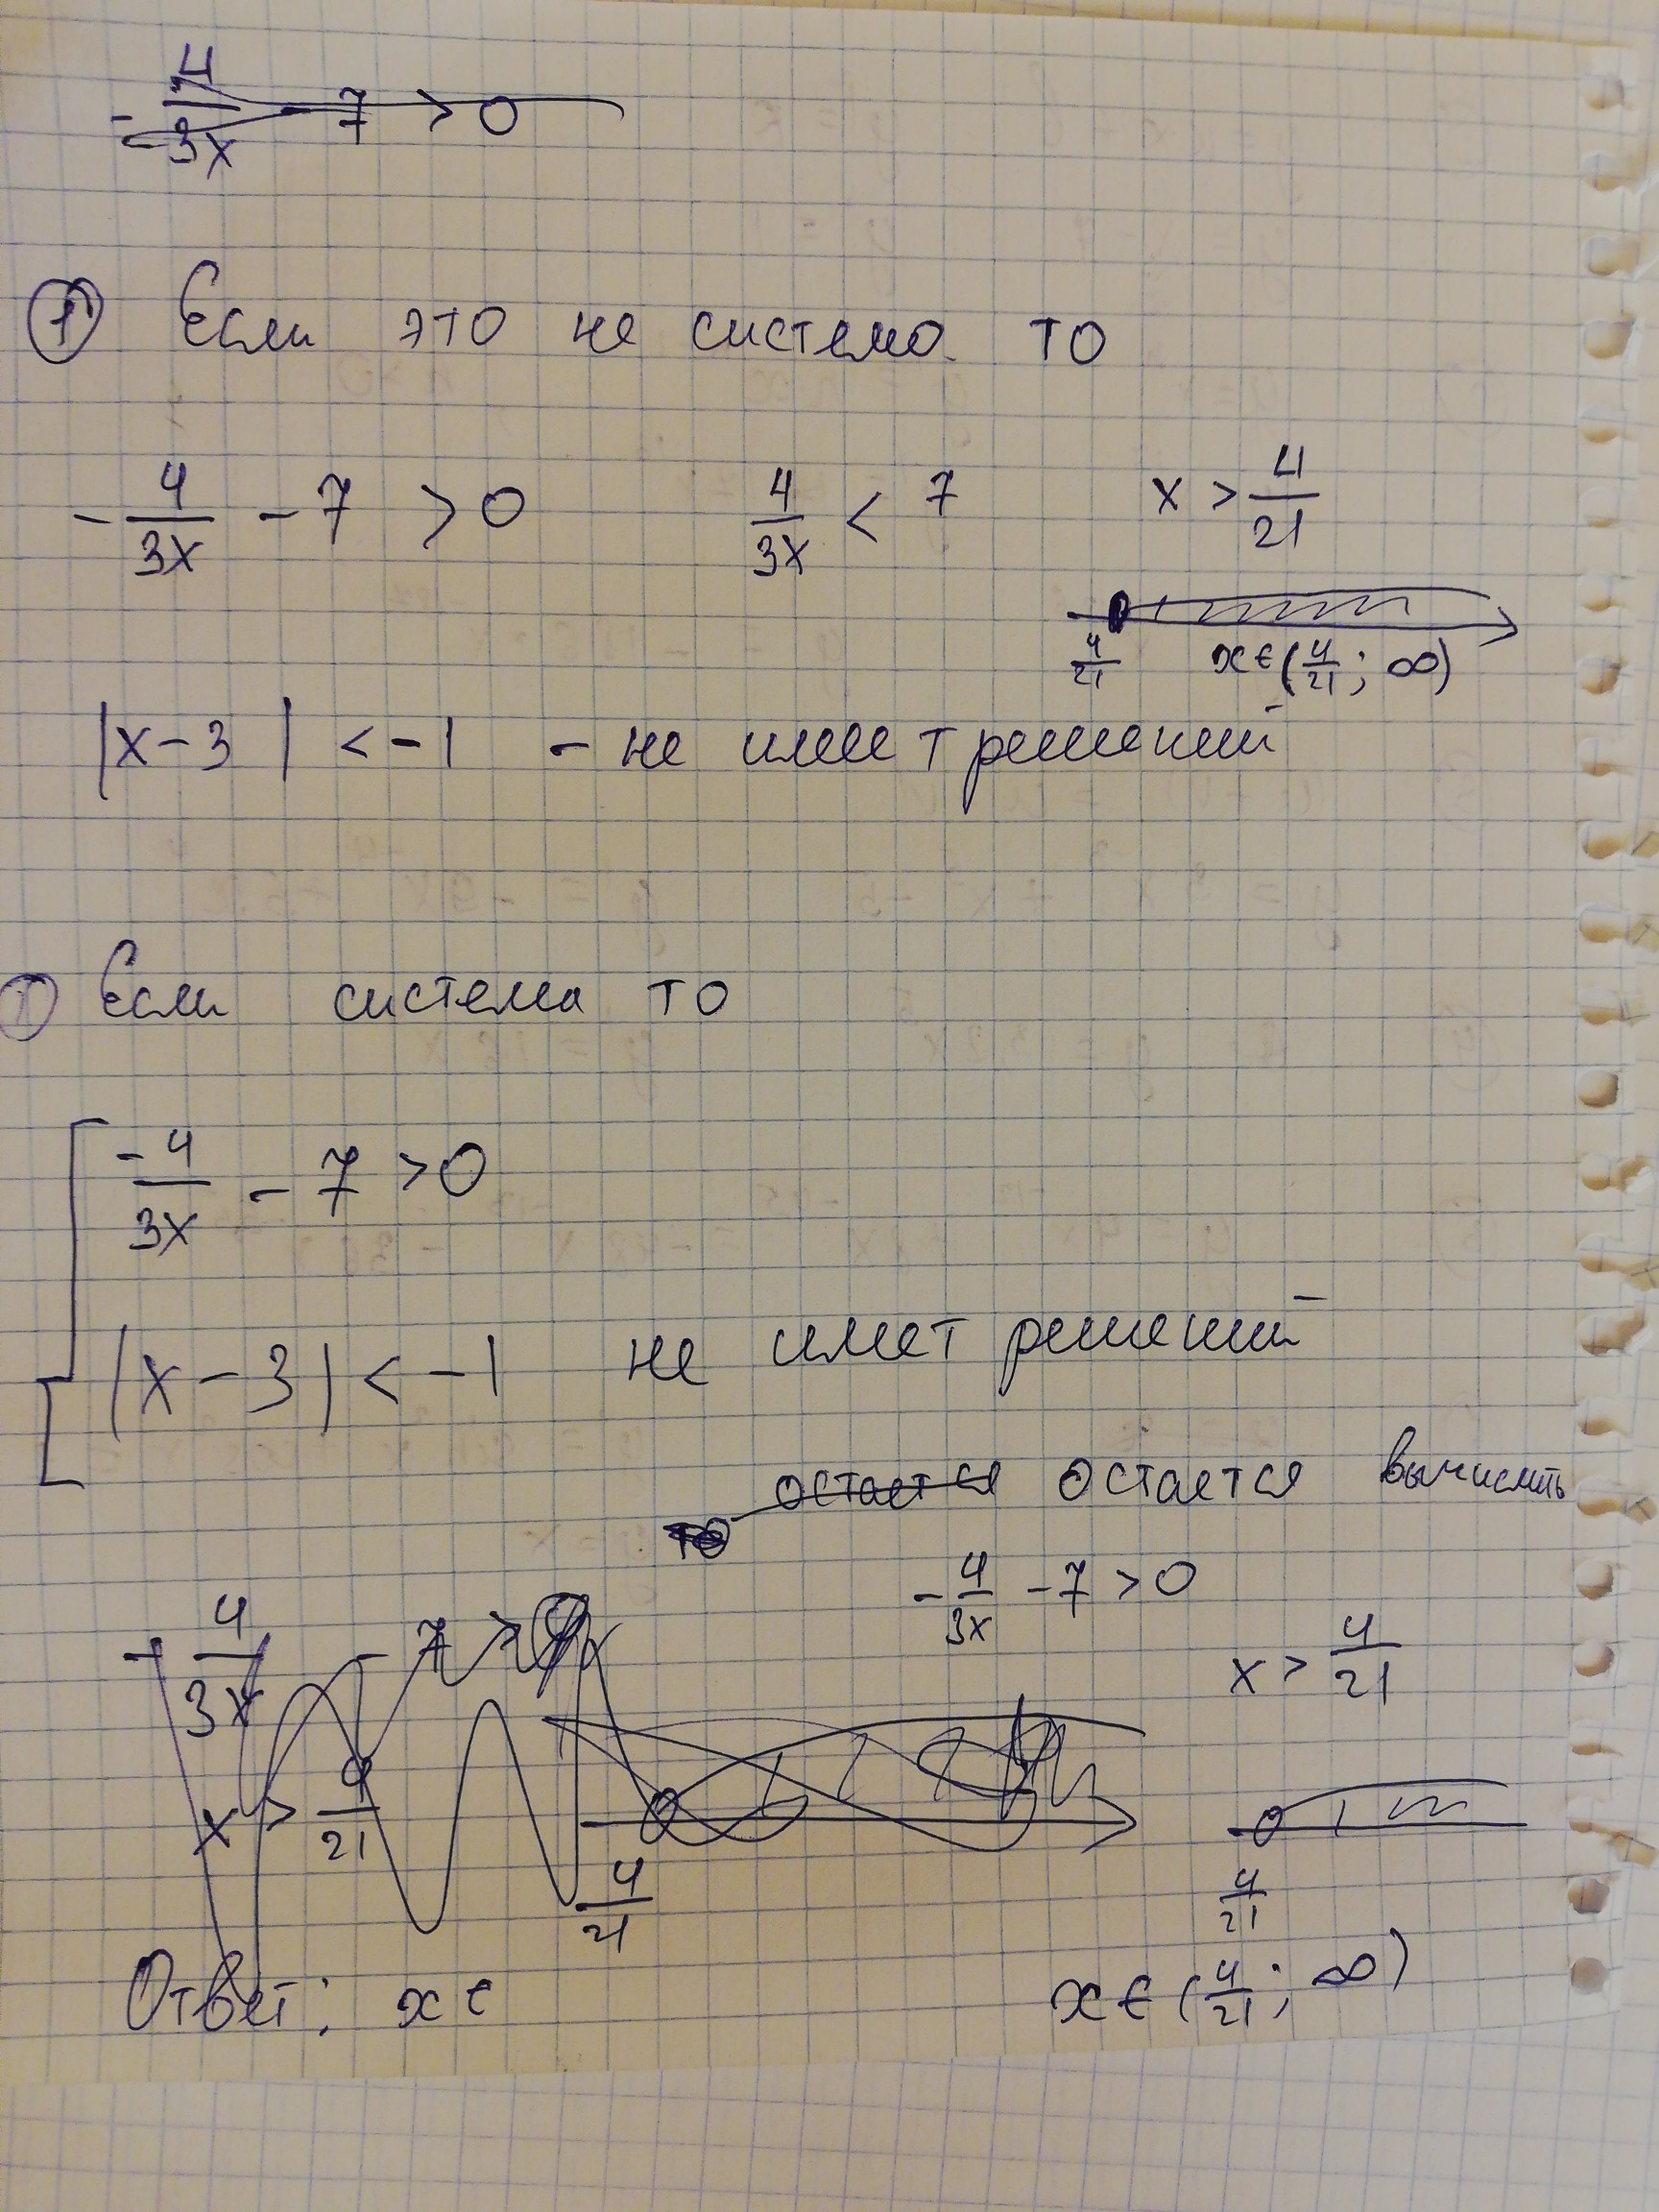 - 4/3x - 7 > 0
① Если это не система то
- 4/3x - 7 > 0    4/3x < 7    x > 4/21
4/21    x ∈ (4/21; ∞)
|x - 3| < -1 - не имеет решений
Если система то
-4/3x - 7 > 0
|x - 3| < -1 не имет решений
остается остается вычислить
то
- 4/3x - 7 > 0
- 4/3x - 7 > 0    x > 4/21
x > 4/21
4/21    4/21
Ответ: x ∈    x ∈ (4/21; ∞)